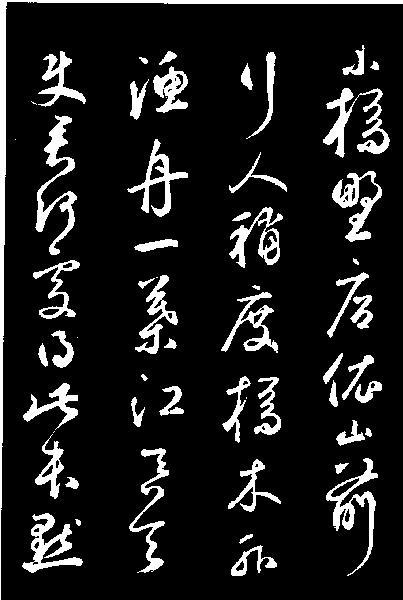 小橋野店依山前
行人稍度橋木外
漁舟一葉江吞天
使君何處得此本點